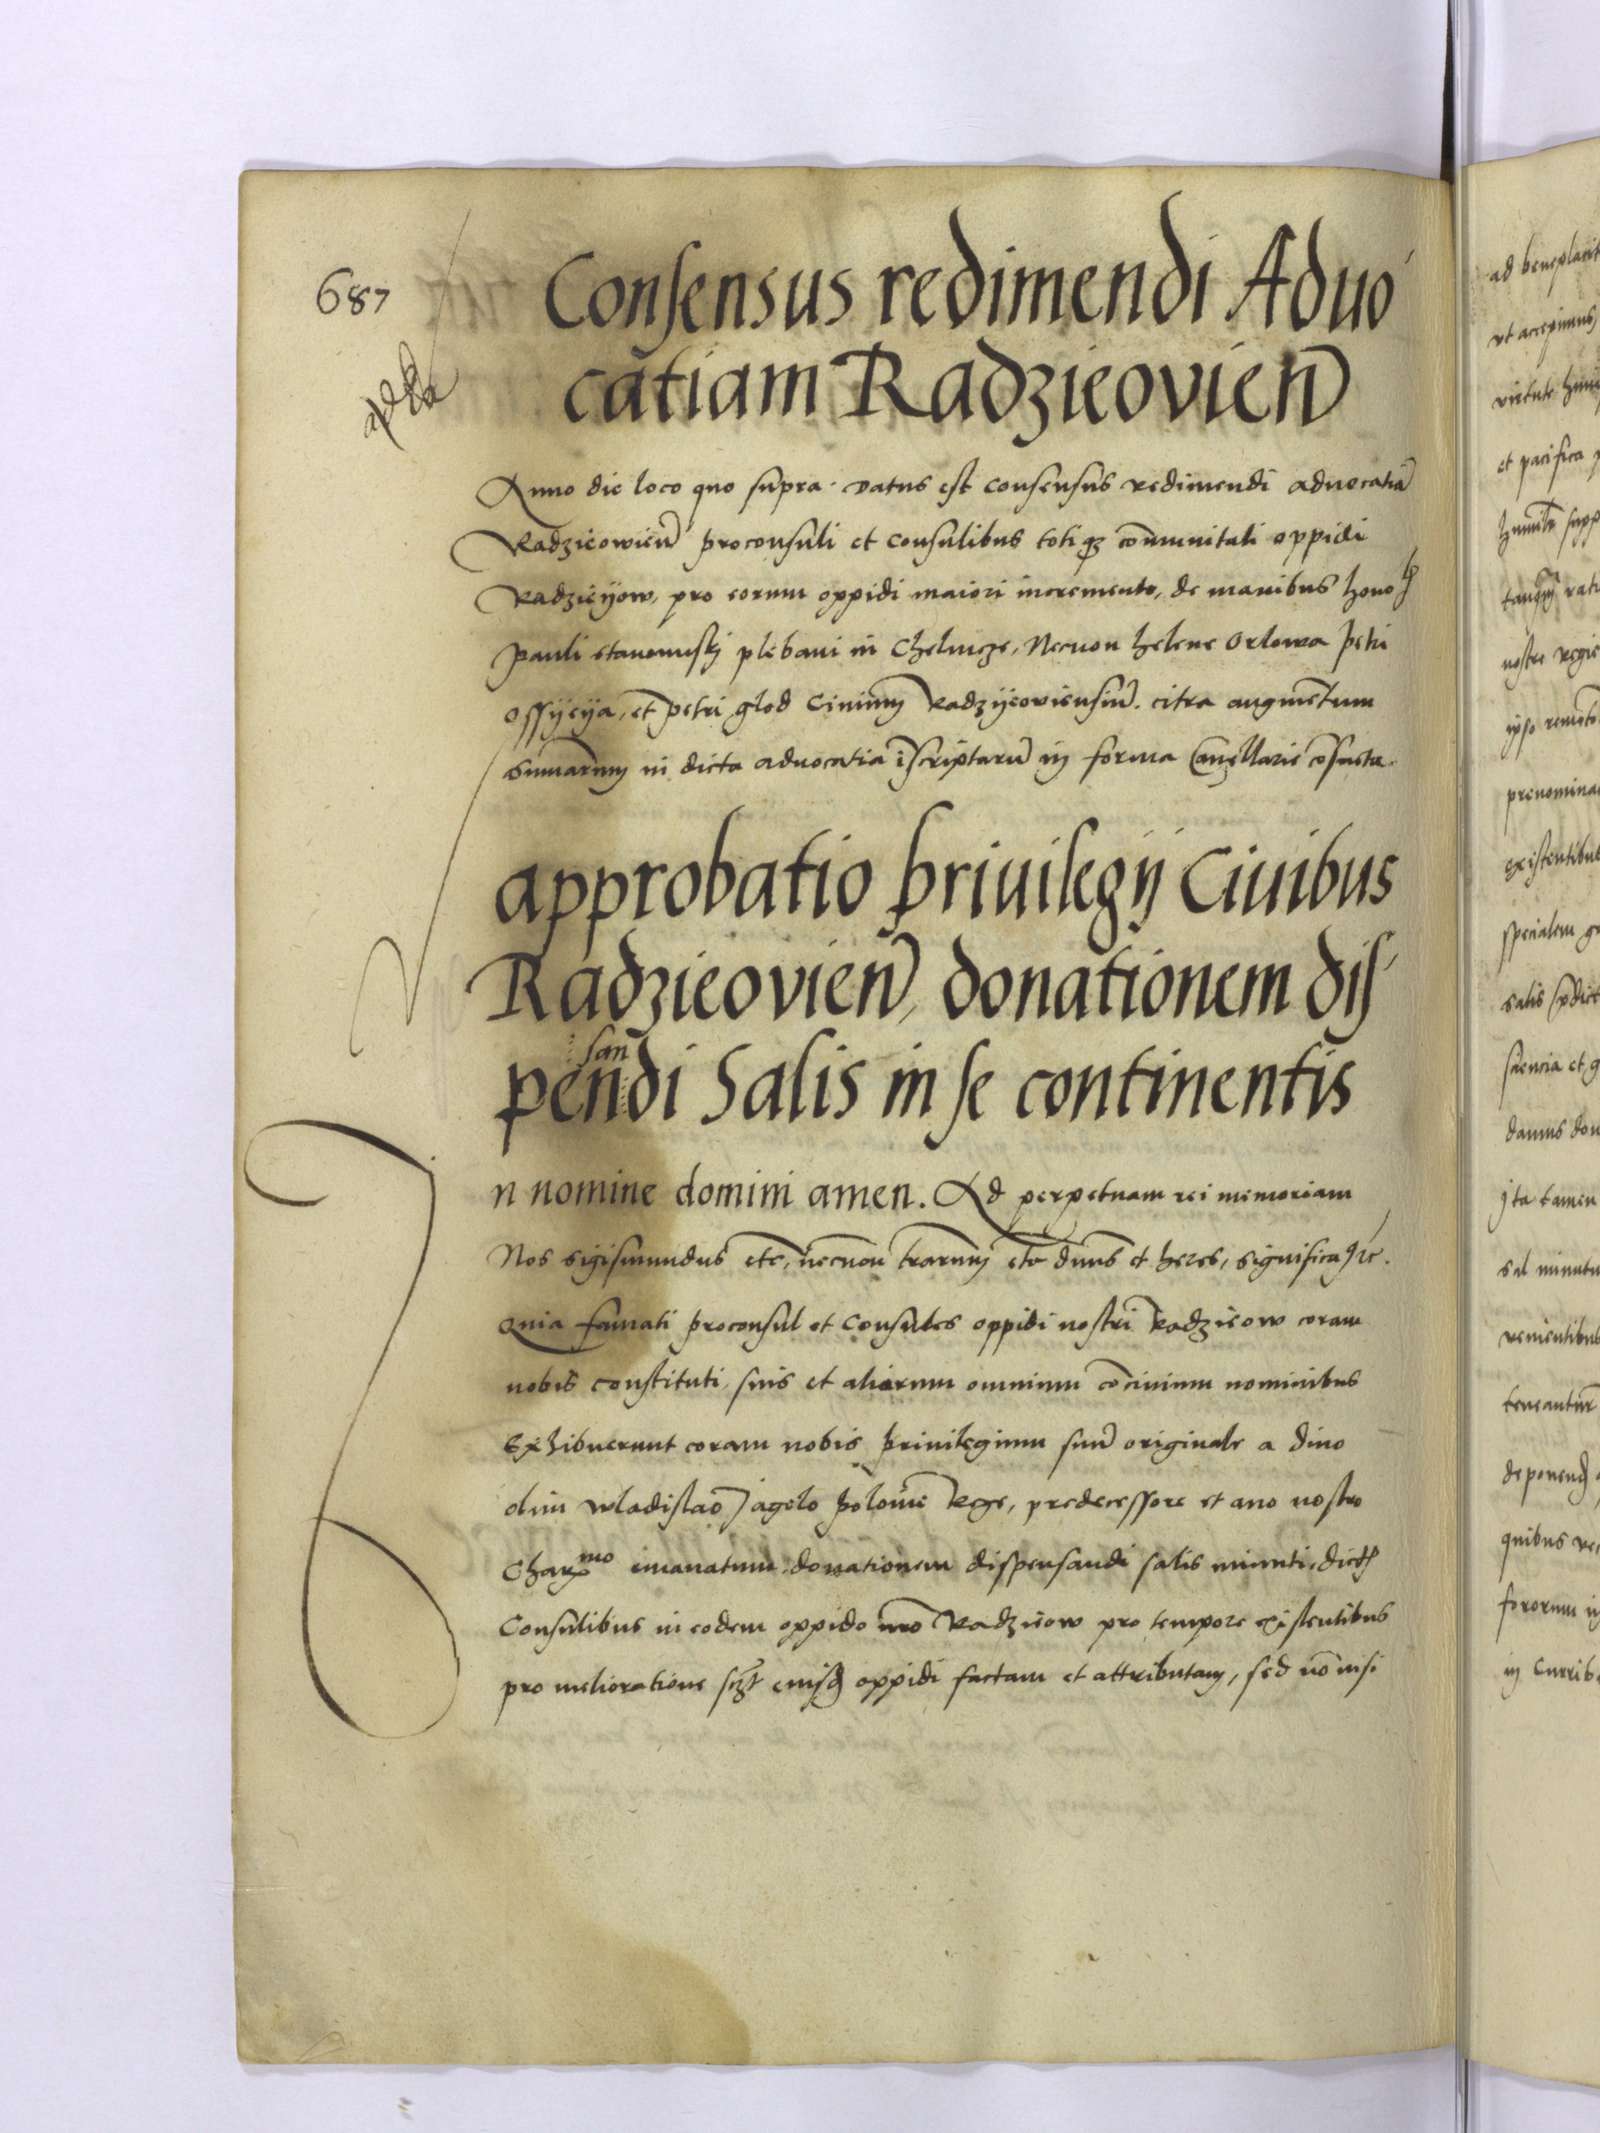 687
Consensus redimendi Aduo
catiam Radzieovien
Anno die loco quo supra. Datus est consensus redimendi advocatiā
Radzieowien̄ proconsuli et consulibus totiqȝ com̄unitati oppidi
Radzieyow, pro eorum oppidi maiori incremento, de manibus hono
Pauli plebani in Chelmcze, Necnon helene Orlowa petri
Ossyeya, et petri glod Civium Radzyeoviensiū. citra augmentum
Sum̄arum in dicta advocatia īscriptarū in forma Cancellarie cōsueta.
approbatio priuilegij Ciuibus
Radzieovien, donationem dis
san
pendi Salis in se continentis
In nomine domini amen. Ad perpetuam rei memoriam
Nos Sigismundus etc, necnon trarum etc dnns et heres, significa
Quia famati proconsul et Consules oppidi nostri Radzieow coram
nobis constituti, suis et aliorum omnium cōcivium nominibus
Exhibuerunt coram nobis privilegium suū originale a divo
olim Wladislao Jagelo polonie Rege, predecessore et auo nostro
Char^mo emanatum, donationem dispensandi salis minuti, dict
Consulibus in eodem oppido nro Radzieow pro tempore existentibus
pro melioratione eiusd oppidi factam et attributam, sed nō nisi
ad
ut accepimus,
virtute
et pacifica
ratu
nostre regie
ipso
prenomina
existentibus
specialem
salis
sciencia et g
damus don
Ita tamen
sal minutu
venientibus
teneantur
deponend
quibus
fororum
in curribus